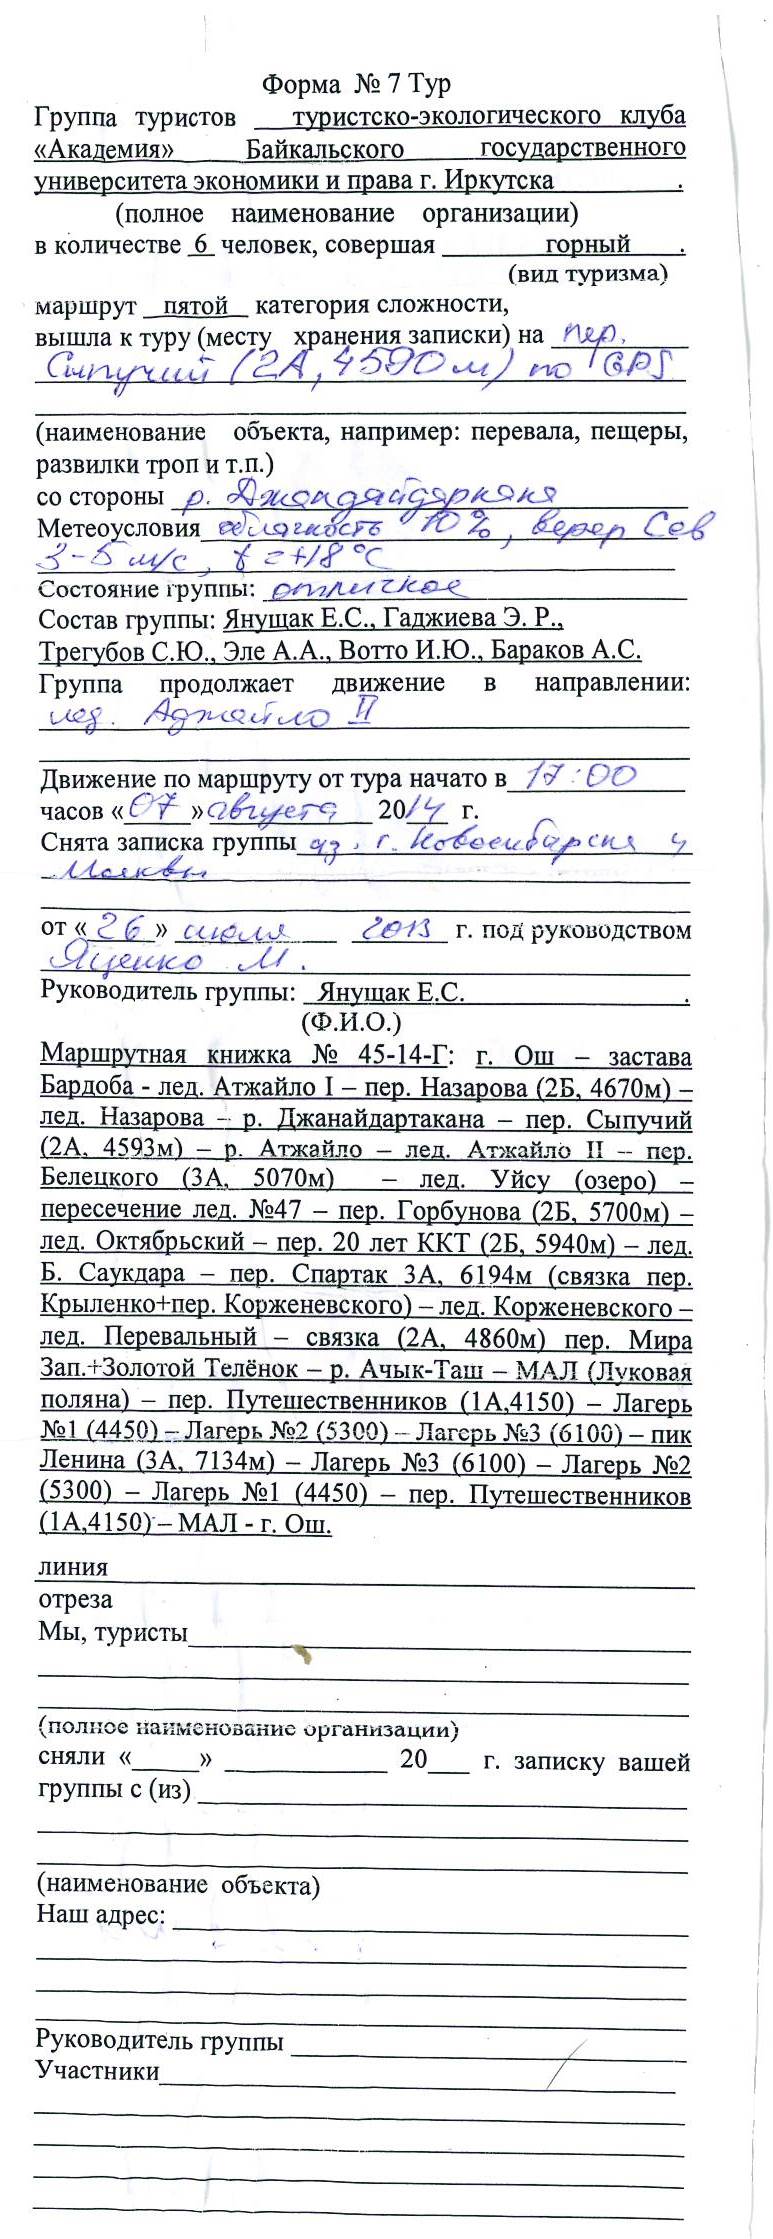 Форма № 7 Тур
Группа туристов туристско-экологического клуба
«Академия» Байкальского государственного
университета экономики и права г. Иркутска .
(полное наименование организации)
в количестве 6 человек, совершая горный .
(вид туризма)
маршрут пятой категория сложности,
вышла к туру (месту хранения записки) на пер.
Сыпучий (2А, 4590 м) по GPS
(наименование объекта, например: перевала, пещеры,
развилки троп и т.п.)
со стороны р. Джанайдартакана
Метеоусловия облачность 10%, ветер Сев
3-5 м/с, t = +18 °C
Состояние группы: отличное
Состав группы: Янущак Е.С., Гаджиева Э. Р.,
Трегубов С.Ю., Эле А.А., Вотто И.Ю., Бараков А.С.
Группа продолжает движение в направлении:
лед. Аджайло II
Движение по маршруту от тура начато в 17:00
часов «07» августа 2014 г.
Снята записка группы из г. Новосибирска и
Москвы
от «26» июля 2013 г. под руководством
Яценко М.
Руководитель группы: Янущак Е.С. .
(Ф.И.О.)
Маршрутная книжка № 45-14-Г: г. Ош – застава
Бардоба - лед. Атжайло I – пер. Назарова (2Б, 4670м) –
лед. Назарова – р. Джанайдартакана – пер. Сыпучий
(2А, 4593м) – р. Атжайло – лед. Атжайло II – пер.
Белецкого (3А, 5070м) – лед. Уйсу (озеро) –
пересечение лед. №47 – пер. Горбунова (2Б, 5700м) –
лед. Октябрьский – пер. 20 лет ККТ (2Б, 5940м) – лед.
Б. Саукдара – пер. Спартак 3А, 6194м (связка пер.
Крыленко+пер. Корженевского) – лед. Корженевского –
лед. Перевальный – связка (2А, 4860м) пер. Мира
Зап.+Золотой Телёнок – р. Ачык-Таш – МАЛ (Луковая
поляна) – пер. Путешественников (1А,4150) – Лагерь
№1 (4450) – Лагерь №2 (5300) – Лагерь №3 (6100) – пик
Ленина (3А, 7134м) – Лагерь №3 (6100) – Лагерь №2
(5300) – Лагерь №1 (4450) – пер. Путешественников
(1А,4150) – МАЛ - г. Ош.
линия
отреза
Мы, туристы
(полное наименование организации)
сняли « » 20 г. записку вашей
группы с (из)
(наименование объекта)
Наш адрес:
Руководитель группы
Участники